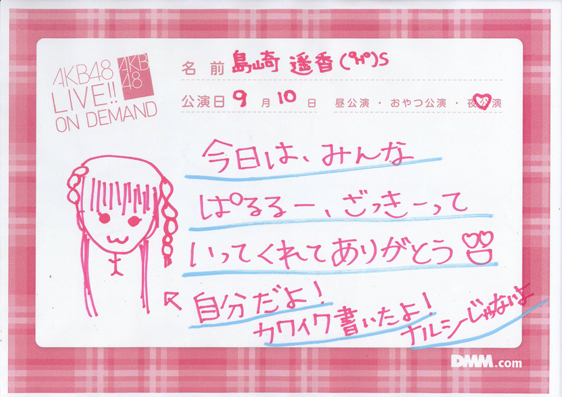 AKB48
LIVE!!
ON DEMAND
AKB
48
名前 島崎 遥香(°∀°)S
公演日 9月10日 昼公演・おやつ公演・夜公演
今日は、みんな
ぱるるー、ざっきーって
いってくれてありがとう
自分だよ!
カワイク書いたよ!
ナルシーじゃないよ
DMM.com